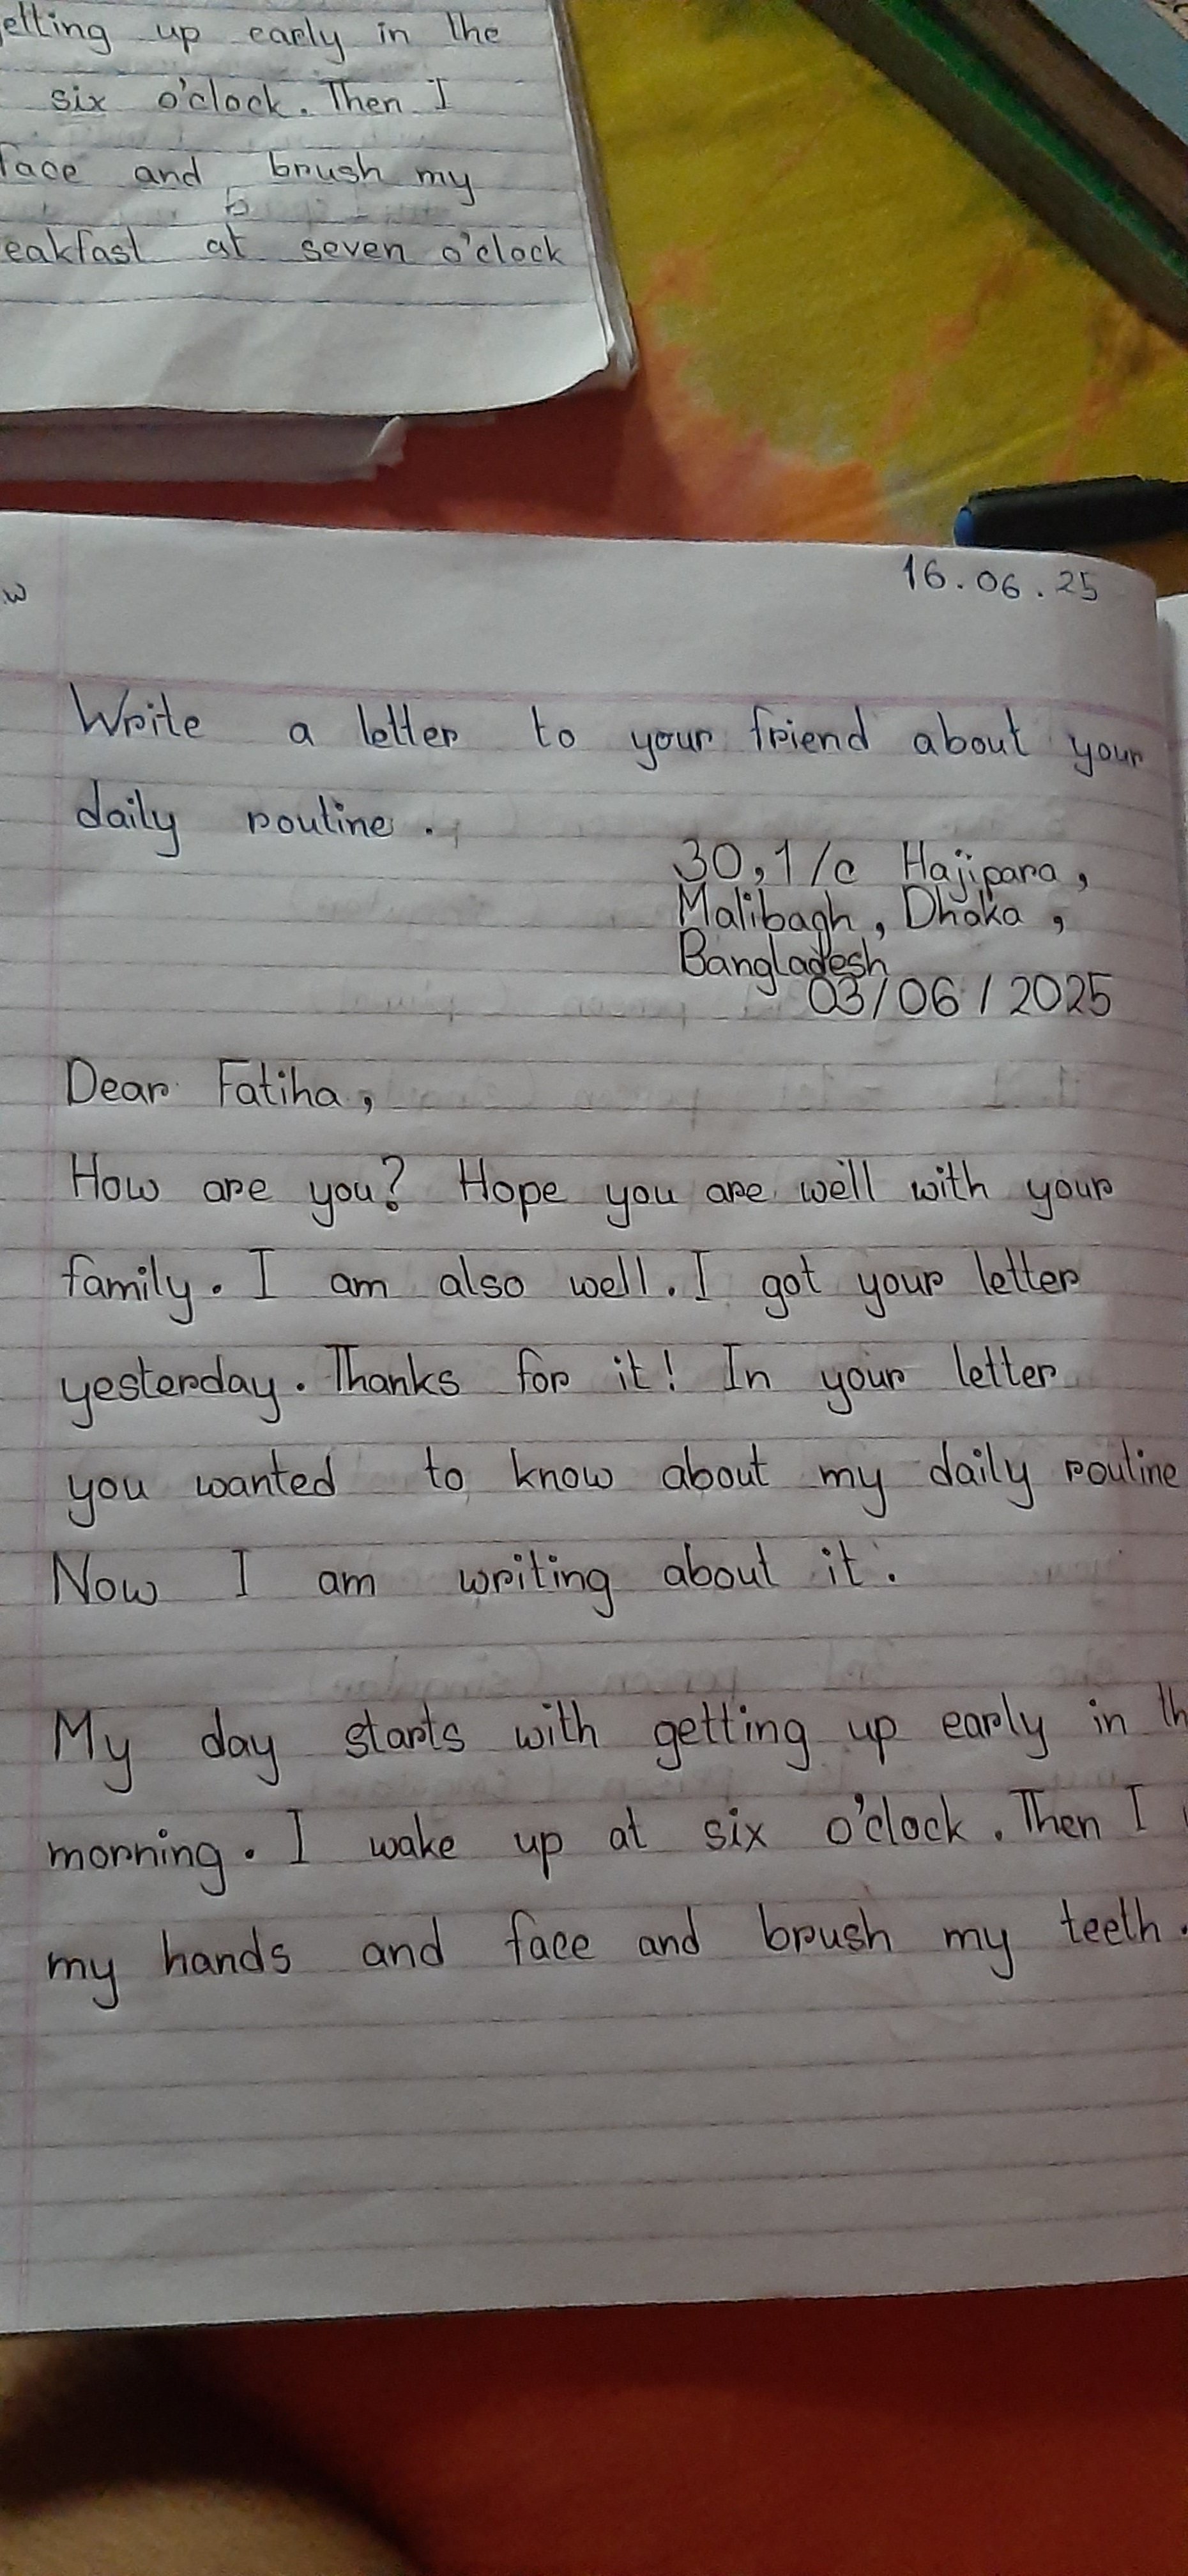 etting up early in the
six o'clock. Then I
face and brush my
b
eakfast at seven o'clock
16.06.25
w
Write a letter to your friend about your
daily routine.
30,1/c Hajipara,
Malibagh, Dhaka,
Bangladesh
03/06/2025
Dear Fatiha,
How are you? Hope you are well with your
family. I am also well. I got your letter
yesterday. Thanks for it! In your letter
you wanted to know about my daily routine
Now I am writing about it.
My day starts with getting up early in th
morning. I wake up at six o'clock. Then I
my hands and face and brush my teeth.